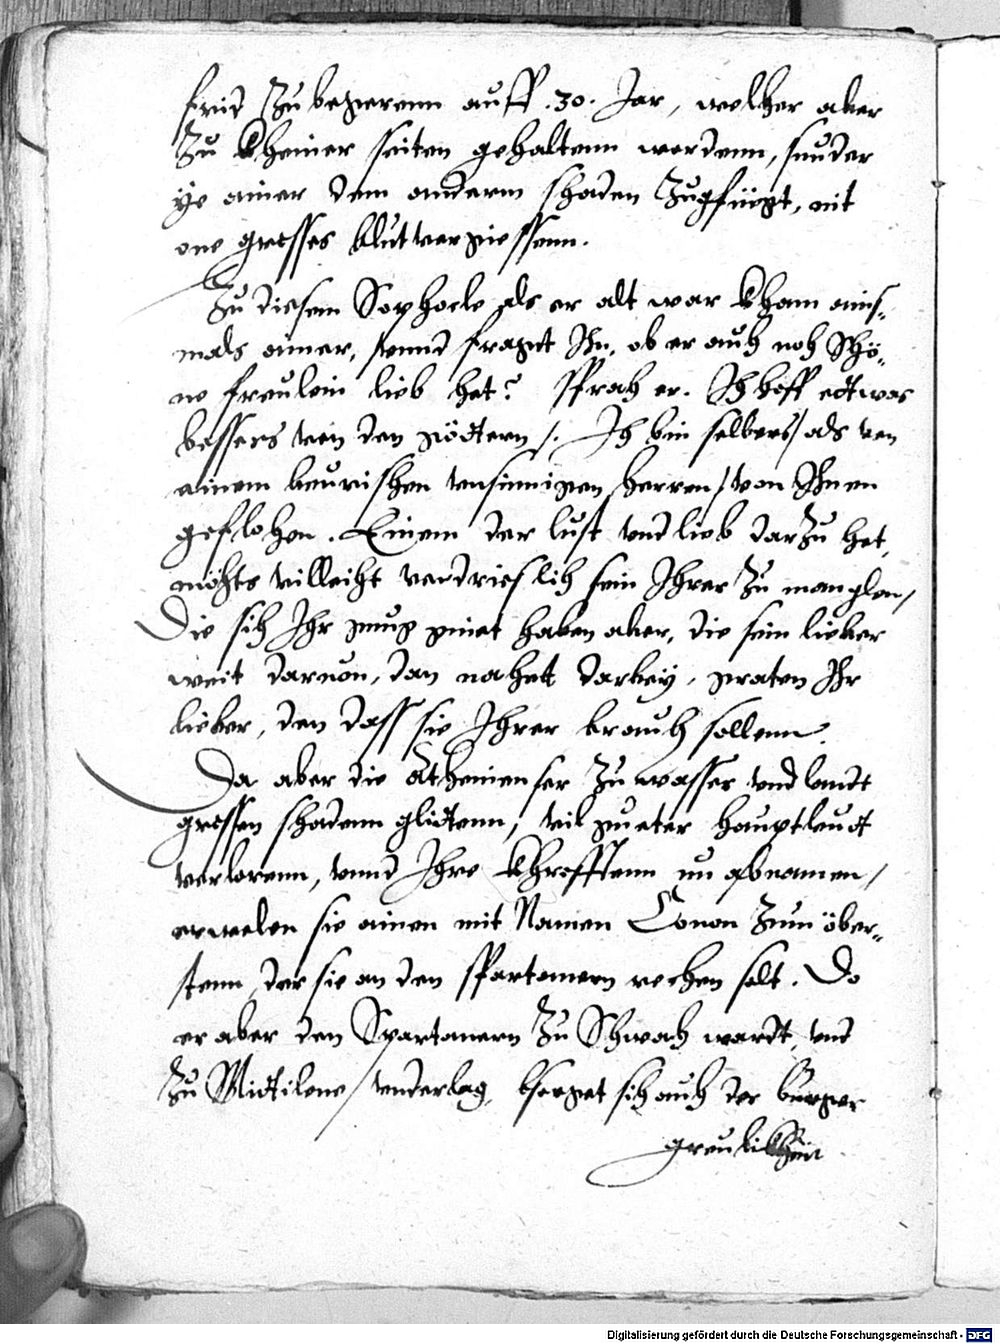 frid Zu begerenn auff .30. Jar, welcher aber
Zu kheiner seiten gehaltenn werdenn, sunder
ye ainer dem anderm schaden Zugfüegt, nit
one grosses blutvergiessenn.
Zu diesem Sophocle als er alt war kham ains-
mals ainer, vnnd fragnt Ihn, ob er auch noch Schö-
ne freulein lieb het? Sprach er. Ich hoff ettwas
bessers von den göttern /. Ich bin selbers / als von
ainem beurischen vnsinnigen herren / von Ihnen
geflohen. Einem der lust vnd lieb darZu het,
möchts villeicht verdrieslich sein Ihrer Zu manglen /
Die sich Ihr gnug gniet haben aber, die sein lieber
weit daruon, dan nahett darbey, graten Ihr
lieber, den dass sie Ihrer brauch sollenn.
Da aber die Athenienser Zu wasser vnd landt
grossen schadenn glittenn, vil gueter hauptleudt
verlorenn, vnnd Ihre khrefftenn nu abnamen /
erwelen sie ainen mit Namen Conon Zum öber-
stenn, der sie an den Spartanern rechen solt. Do
er aber den Spartanern Zu Schwach wardt, vnd
Zu Mittilene / vnderlag, bsorget sich auch der burger
greulikheit
Digitalisierung gefördert durch die Deutsche Forschungsgemeinschaft - DFG